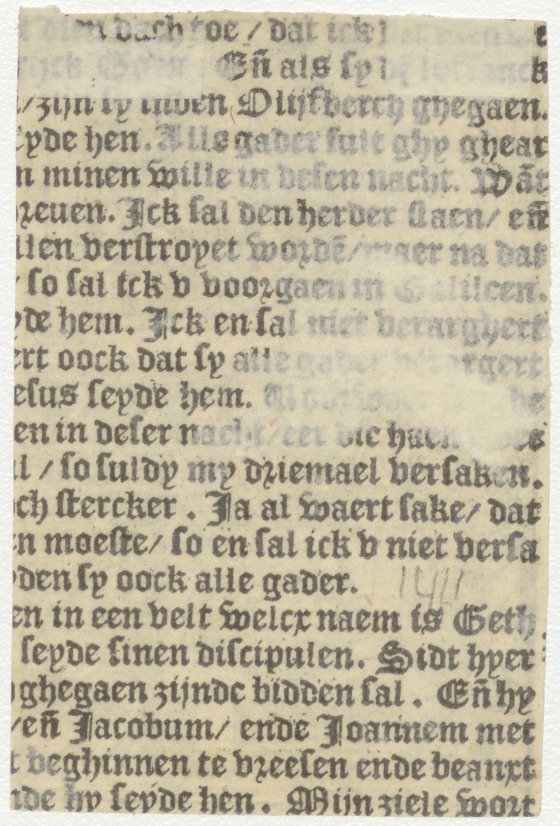 dien dach toe / dat ick
Eñ als sy
/ zijn sy inden Olijfberch ghegaen.
eyde hen. Alle gader sult ghy ghear
n minen wille in desen nacht. Wāt
ꝛeuen. Jck sal den herder slaen / eñ
llen verstroyet wordē / maer na dat
/ so sal ick v vooꝛgaen in Galileen.
yde hem. Jck en sal niet verarghert
ert oock dat sy alle gader verargert
esus seyde hem.
en in deser nacht / eer die haen
l / so suldy my dꝛiemael versaken.
och stercker . Ja al waert sake / dat
en moeste / so en sal ick v niet versa
yden sy oock alle gader.
en in een velt welcx naem is Geth
seyde sinen discipulen. Sidt hyer
ghegaen zijnde bidden sal . Eñ hy
/ eñ Jacobum / ende Joannem met
t beghinnen te vꝛeesen ende beanxt
nde hy seyde hen . Mijn ziele wort